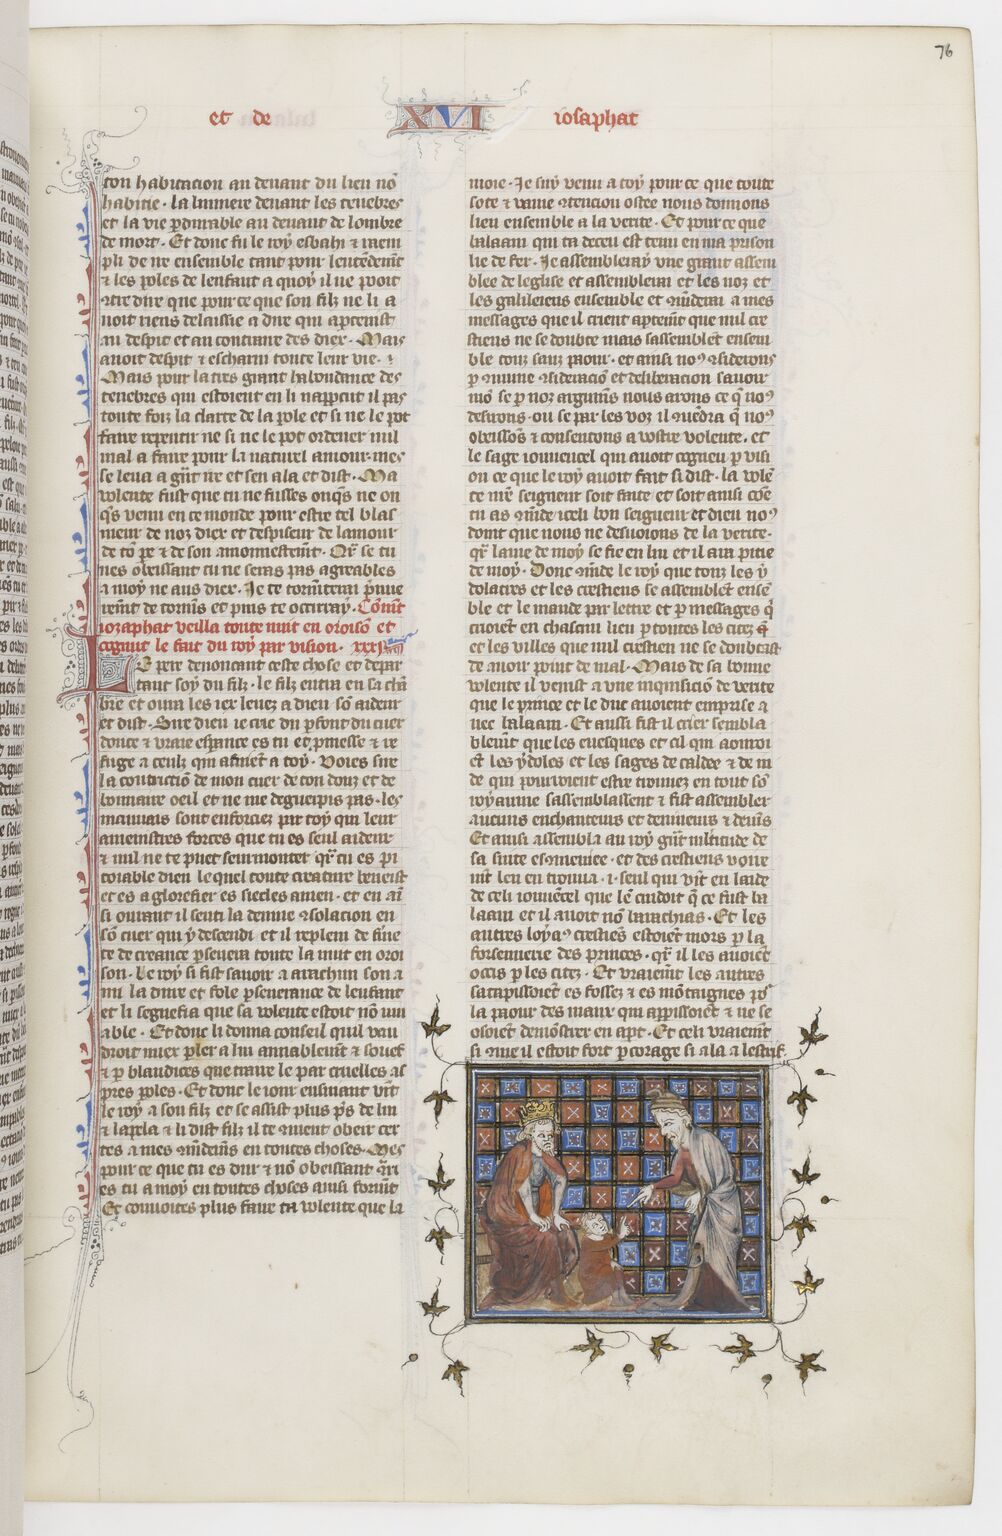 76
et de XVI iosaphat
ton habitacion au deuant du lieu nō
habite. la lumiere deuant les tenebres
et la vie pdurable au deuant de lombre
de mort. Et donc fu le roy esbahi et raem
pli de ire ensemble tant pour lentēdemt
⁊ les poles de lenfant a quoy il ne pooit
9tredire que pour ce que son filz ne li a
uoit riens delaissie a dire qui aptenist
au despit et au contraire des diex. Mais
auoit despit ⁊ escharni toute leur vie.
Mais pour la tres grant habondance des
tenebres qui estoient en li napercut il pas
toute foiz la clarte de la pole et si ne le pot
faire repentir ne si ne le pot ordener nul
mal a faire pour la naturel amour. mes
se leua a gnt ire et sen ala et dist. Ma
volente fust que tu ne fusses onqs ne on
qs venu en ce monde pour estre tel blas
meur de noz diex et despiseur de lamour
de tō pe ⁊ de son amonnestemt. Or se tu
nes obeissant tu ne seras pas agreables
a moy ne aus diex. Je te tormterai pmie
remt de tormēs et puis te occirray. Cōmt
iozaphat veilla toute nuit en oroisō et
cognut le fait du roy par vision. xxx
LE pere denoncant ceste chose et depar
tant soy du filz. le filz entra en sa chā
bre et ouura les iex leuez a dieu sō aideur
et dist. Sire dieu ie crie du pfont du cuer
douce ⁊ vraie espance es tu et pmesse ⁊ re
fuge a ceulz qui afuiēt a toy. Voies sire
la contrictiō de mon cuer de ton douz et de
bonnaire oeil et ne me deguerpis pas. les
mauuais sont enforciez par toy qui leur
amenistres forces que tu es seul aideur
⁊ nul ne te puet seurmonter qr tu es pi
toiable dieu lequel toute creature beneist
et es a glorefier es siecles amen. et en aī
si ourant il senti la deuine 9solacion en
sō cuer qui y descendi et il repleni de fine
te de creance pseuera toute la nuit en oroi
son. Le roy si fist sauoir a arachim son a
mi la dure et fole pseuerance de lenfant
et li segnefia que sa volente estoit nō mu
able. Et donc li donna conseil quil vau
droit miex pler a lui amiablemt ⁊ souef
⁊ p blaudices que traire le par cruelles as
pres poles. Et donc le iour ensiuant vīt
le roy a son filz et se assist plus ps de lui
⁊ lapela ⁊ li dist filz il te 9uient obeir cer
tes a mes mdemēs en toutes choses. Mes
pour ce que tu es dur ⁊ nō obeissant qri
es tu a moy en toutes choses ainsi formt
Et conuoites plus faire ta volente que la
moie. Je suy venu a toy pour ce que toute
sote ⁊ vaine 9tencion ostee nous donnons
lieu ensemble a la verite. Et pour ce que
balaam qui ta deceu est tenu en ma prison
lie de fer. Je assembleray vne grant assem
blee de leglise et assemblerai et les noz et
les galileiens ensemble et mderai a mes
messages que il crient aptemt que nul cre
stiens ne se doubte mais sassemblēt ensem
ble touz sanz paour. et ainsi no9 9siderons
p 9mune 9sideraciō et deliberacion sauoir
mō se p noz argumēs nous arons ce q no9
desirons. ou se par les voz il 9uēdra q no9
obeissōs ⁊ consentons a vostre volente. et
le sage iouuencel qui auoit cogneu p visi
on ce que le roy auoit fait si dist. la volē
te nre seigneur soit faite et soit ainsi cōe
tu as mde. iceli bon seigneur et dieu no9
doint que nous ne desuoions de la verite.
qr lame de moy se fie en lui et il ara pitie
de moy. Donc mde le roy que touz les y
dolatres et les crestiens se assemblēt ensē
ble et le mande par lettre et p messages q
crioiēt en chascun lieu p toutes les citez
et les villes que nul crestien ne se doubtast
de auoir point de mal. Mais de sa bonne
volente il venist a vne inquisiciō de verite
que le prince et le duc auoient emprise a
uec balaam. Et aussi fist il crier sembla
blemt que les euesques et cil qui aouroi
ēt les ydoles et les sages de caldee ⁊ de in
de qui pourroient estre trouuez en tout sō
royaume sassemblassent ⁊ fist assembler
aucuns enchanteurs et deuineurs ⁊ deuīs
Et ainsi assembla au roy gnt mltitude de
sa suite esmeruiee. et des crestiens vōre
mt leu en trouua .i. seul qui vīt en laide
de celi iouuēcel que lē cuidoit q ce fust ba
laam et il auoit nō barachias. Et les
autres loyaus crestiēs estoiēt mors p la
forsennerie des princes. qr il les auoiēt
occis p les citez. Et vraiemt les autres
satapissoiēt es fossez ⁊ es mōtaignes
la paour des maux qui apissoiēt ⁊ ne se
osoiēt demōstrer en apt. Et celi vraiemt
si 9me il estoit fort p corage si ala a lestrif